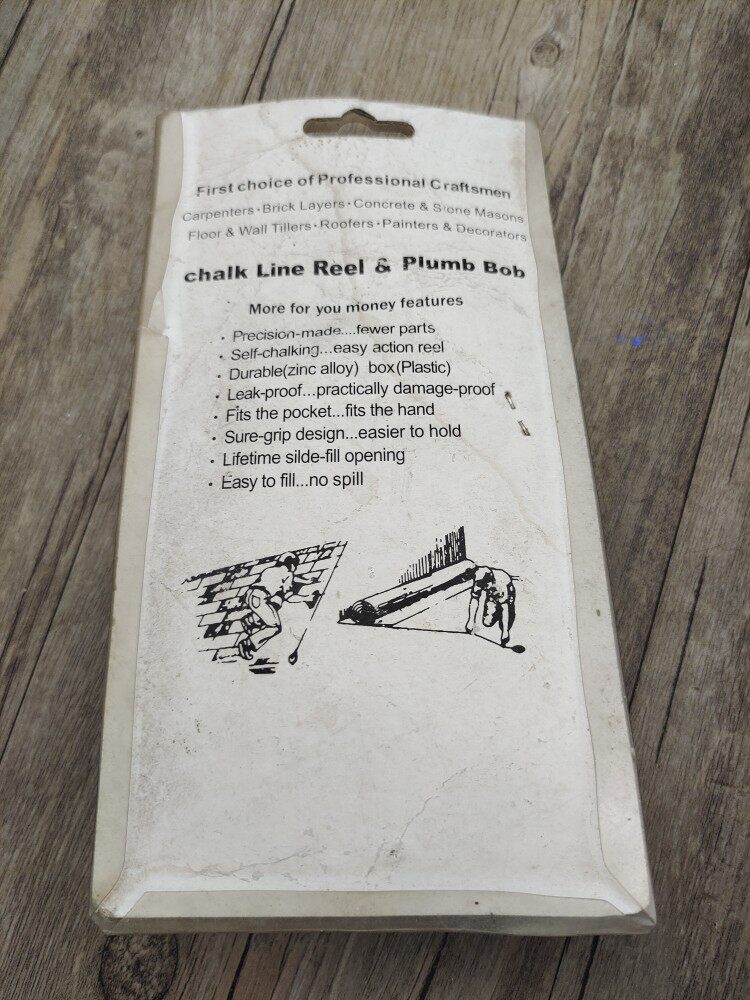 First choice of Professional Craftsmen
Carpenters·Brick Layers·Concrete & Stone Masons
Floor & Wall Tillers·Roofers·Painters & Decorators
chalk Line Reel & Plumb Bob
More for you money features
· Precision-made....fewer parts
· Self-chalking...easy action reel
· Durable(zinc alloy) box(Plastic)
· Leak-proof...practically damage-proof
· Fits the pocket...fits the hand
· Sure-grip design...easier to hold
· Lifetime silde-fill opening
· Easy to fill...no spill